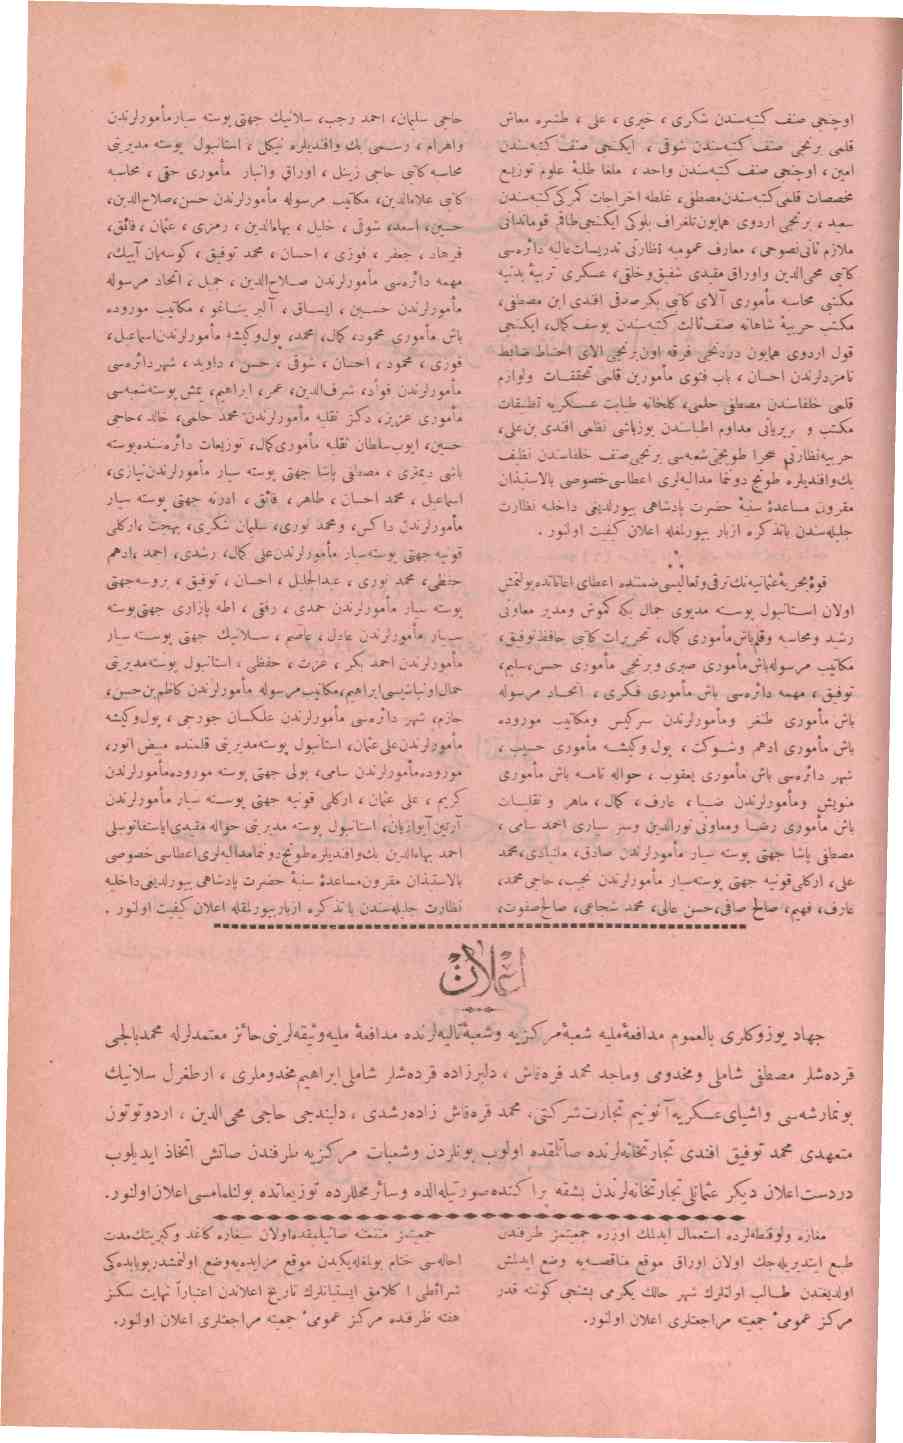 اوچنجی صنف كتبه‌سندن شكری ، خیری ، علی ، طشره معاش
قلمی برنجی صنف كتبه‌سندن شوقی ، ایكنجی صنف كتبه‌سندن
امین ، اوچنجی صنف كتبه‌سندن واحد ، ملغا طلبۀ علوم توزیع
مخصصات قلمی كتبه‌سندن مصطفی، غلطه اخراجات كمركی كتبه‌سندن
سعید ، برنجی اردوی همایون تلغراف بلوكی ایكنجی طاقم قوماندانی
ملازم ثانی نصوحی ، معارف عمومیه نظارتی تدریسات عالیه دائره‌سی
كاتبی محی‌الدین واوراق مقیدی شفیق وخلقی ، عسكری تربیۀ بدنیه
مكتبی محاسبه مأموری آلای كاتبی بكر صدقی افندی ابن مصطفی،
مكتب حربیۀ شاهانه صنف ثالث كتبه‌سندن یوسف كمال، ایكنجی
قول اردوی همایون دردنجی فرقه اون برنجی الای احتیاط ضابط
نامزدلرندن احسان ، باب فتوی مأمورین قلمی تحقیقات ولوازم
قلمی خلفاسندن مصطفی حلمی، كلخانه طبابت عسكریه تطبیقات
مكتب و سریریاتی مداوم اطباسندن یوزباشی نظمی افندی بن علی،
حربیه نظارتی صحرا طوپجی شعبه‌سی برنجی صنف خلفاسندن نظیف
بك وافندیلره طونج دونما مدالیه‌لری اعطاسی خصوصی بالاستیذان
مقرون مساعدۀ سنیۀ حضرت پادشاهی بیورلدیغی داخلیه نظارت
جلیله‌سندن باتذكره ازبار بیورلمغله اعلان كیفیت اولنور .
قوۀ بحریۀ عثمانیه‌نك ترقی وتعالیسی ضمننده اعطای اعاناتده بولنمش
اولان استانبول پوسته مدیری جمال بكه كموش ومدیر معاونی
رشید ومحاسبه وقلم باش مأموری كمال، تحریرات كاتبی حافظ توفیق،
مكاتیب مرسوله باش مأموری صبری وبرنجی مأموری حسن، سلیم،
توفیق ، مهمه دائره‌سی باش مأموری فكری ، اتحاد مرسوله
باش مأموری ظفر ومأمورلرندن سركیس ومكاتیب موروده
باش مأموری ادهم وشوكت ، پول وكیشه مأموری حسیب ،
شهر دائره‌سی باش مأموری یعقوب ، حواله نامه باش مأموری
ومأمورلرندن ضیا ، عارف ، كمال ، ماهر و نقلیات
باش مأموری رضا ومعاونی نورالدین وسر سیاری احمد سامی ،
مصطفی پاشا جهتی پوسته سیار مأمورلرندن صادق، محمد
علی ، اركلی قونیه جهتی پوسته سیار مأمورلرندن نجیب، حاجی محمد،
عارف، فهیم، صالح صافی، حسن عالی، محمد شجاعی، صالح صفوت،
حاجی سلیمان، احمد رجب، سلانیك جهتی پوسته سیار مأمورلرندن
واهرام ، رسمی بك وافندیلره نیكل ، استانبول پوسته مدیریتی
محاسبه كاتبی حاجی زینل ، اوراق وانبار مأموری حقی ، محاسبه
كاتبی علاءالدین، مكاتیب مرسوله مأمورلرندن حسن، صلاح‌الدین،
حسین، اسعد، شوقی ، خلیل ، بهاءالدین ، رمزی ، عثمان ، فائق،
فرهاد ، جعفر ، فوزی ، احسان ، محمد توفیق ،
مهمه دائره‌سی مأمورلرندن صلاح‌الدین ، جمیل ، اتحاد مرسوله
مأمورلرندن حسین ، ایساق ، آلبر بناغو ، مكاتیب موروده
باش مأموری محمود، كمال، محمد، پول وكیشه مأمورلرندن اسماعیل،
فوزی ، محمود ، احسان ، شوقی ، حسن ، داوید ، شهر دائره‌سی
مأمورلرندن فواد، شرف‌الدین، عمر، ابراهیم، پوسته شعبه‌سی
مأموری عزیز، دكز نقلیه مأمورلرندن محمد حلمی، خالد، حاجی
حسین، ایوب سلطان نقلیه مأموری كمال، توزیعات دائره‌سنده پوسته
باشی دیمتری ، مصطفی پاشا جهتی پوسته سیار مأمورلرندن نیازی،
اسماعیل ، محمد احسان ، طاهر ، فائق ، ادرنه جهتی پوسته سیار
مأمورلرندن ومحمد نوری، سلیمان شكری، بهجت ،اركلی
قونیه جهتی پوسته سیار مأمورلرندن علی كمال، رشدی، احمد ،ادهم
حفظی، محمد نوری ، عبدالجلیل ، احسان ، توفیق ، بروسه جهتی
پوسته سیار مأمورلرندن حمدی ، رفقی ، اطه پازاری جهتی پوسته
سیار مأمورلرندن عادل ، عاصم ، سلانیك جهتی پوسته سیار
مأمورلرندن احمد بكر ، عزت ، حفظی ، استانبول پوسته مدیریتی
حمال اونباشیسی ابراهیم، مكاتیب مرسوله مأمورلرندن كاظم بن حسن،
حازم، شهر دائره‌سی مأمورلرندن علكسان جورجی ، پول وكیشه
مأمورلرندن علی عثمان، استانبول پوسته مدیریتی قلمنده مبیض انور،
موروده مأمورلرندن سامی، بولی جهتی پوسته موروده مأمورلرندن
كریم ، علی عثمان ، اركلی قونیه جهتی پوسته سیار مأمورلرندن
آرتین آیوازیان، استانبول پوسته مدیریتی حواله مقیدی
احمد بهاءالدین بك وافندیلره طونج دونما مدالیه‌لری اعطاسی خصوصی
بالاستیذان مقرون مساعدۀ سنیۀ حضرت پادشاهی بیورلدیغی داخلیه
نظارت جلیله‌سندن باتذكره ازبار بیورلمقله اعلان كیفیت اولنور .
اعلان
جهاد یوزوكلری بالعموم مدافعۀ ملیه شعبۀ مركزیه وشعبۀ تالیه‌لرنده مدافعۀ ملیه وثیقه‌لرینی حائز معتمدلرله محمد بالجی
قرده‌شلر مصطفی شاملی ومخدومی وماجد محمد قره‌قاش ، دلبرزاده قرده‌شلر شاملی ابراهیم مخدوملری ، ارطغرل سلانیك
بونمارشه‌سی واشیای عسكریه آنونیم تجارت شركتی، محمد قره‌قاش زاده رشدی ، دلبندجی حاجی محی‌الدین ، اردو توتون
متعهدی محمد توفیق افندی تجارتخانه‌لرنده صاتلقده اولوب بونلردن وشعبات مركزیه طرفندن صاتش اتخاذ ایدیلوب
دردست اعلان دیكر عثمانلی تجارتخانه‌لرندن بشقه پراكنده صورتیله الده وسائر محللرده توزیعاتده بولنلمامسی اعلان اولنور.
مغازه ولوقنطه‌لرده استعمال ایدلك اوزره جمعیتمز طرفندن
طبع ایتدیریله‌جك اولان اوراق موقع مناقصه‌یه وضع ایدلش
اولدیغندن طالب اولنلرك شهر حالك یكرمی بشنجی كوننه قدر
مركز عمومیٔ جمعیته مراجعتلری اعلان اولنور.
جمعیتمز منفعتنه صاتیلمقده اولان سیغاره كاغد وكبریتك مدت
احاله‌سی ختام بولمغله یكیدن موقع مزایده‌یه وضع اولنمشدر بوبابده‌كی
شرائطی اكلامق ایستیانلرك تاریخ اعلاندن اعتباراً نهایت سكز
هفته ظرفنده مركز عمومیٔ جمعیته مراجعتلری اعلان اولنور.